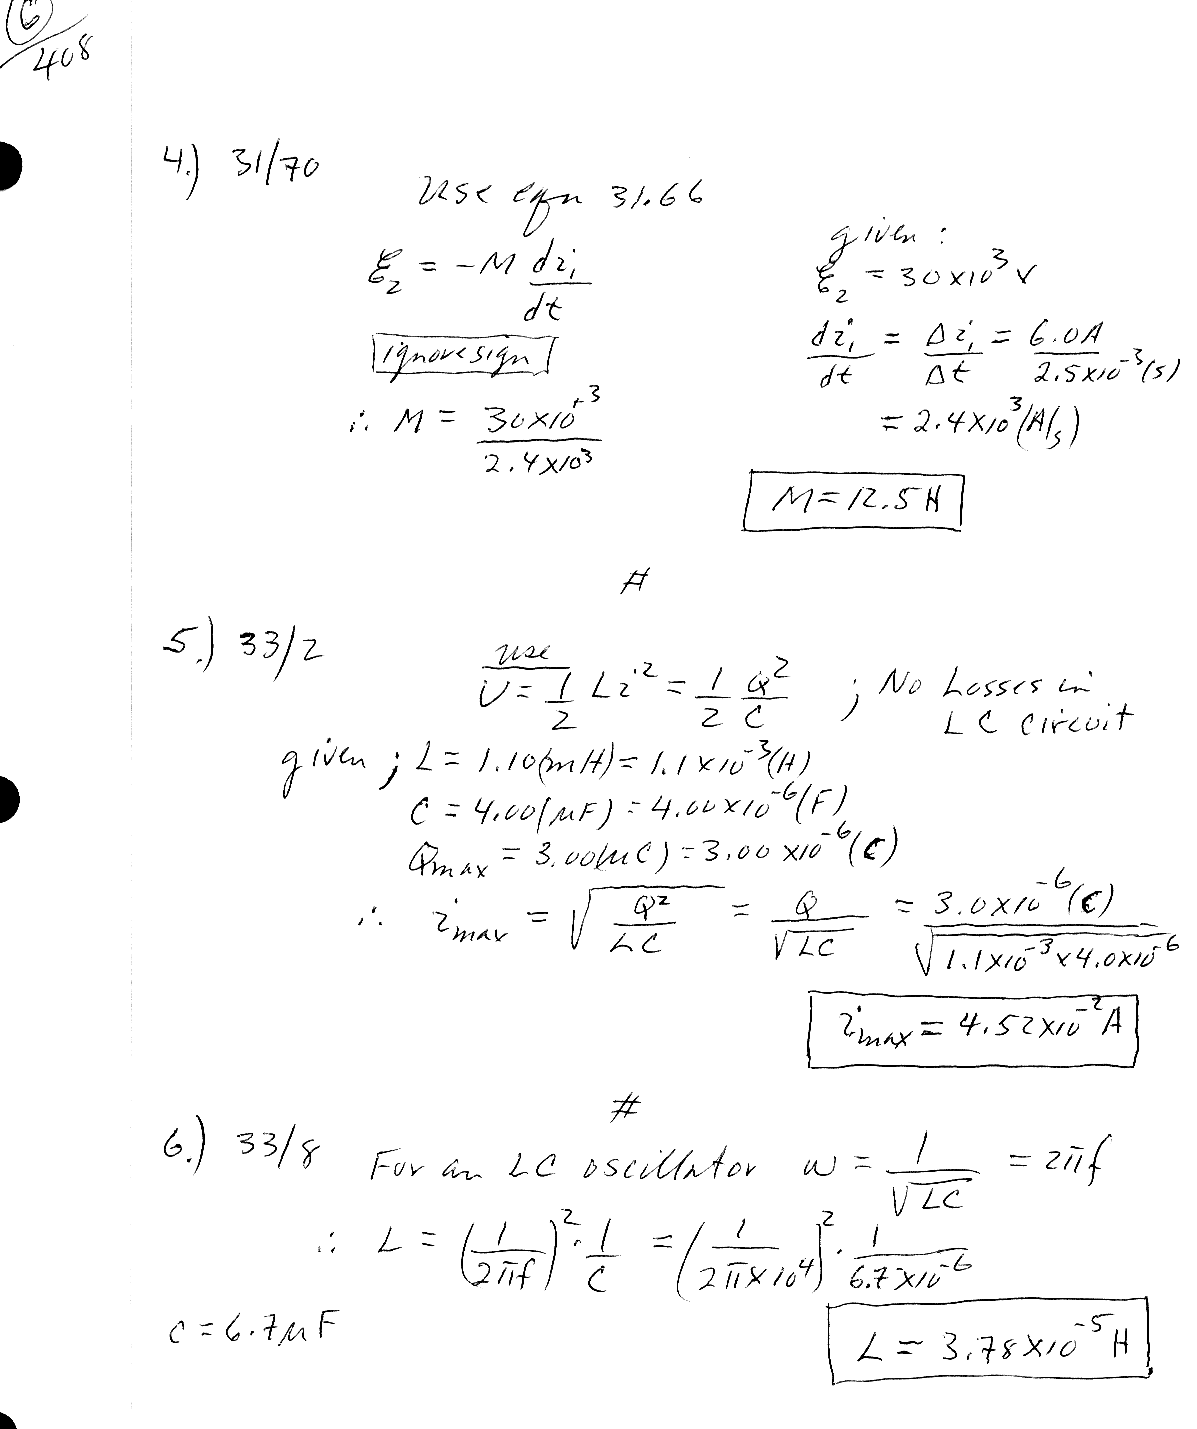 6/408
4.) 31/70
Use eqn 31.66
given:
ℰ₂ = -M di₁/dt
ℰ₂ = 30x10³ V
ignore sign
di₁/dt = Δi₁/Δt = 6.0A/2.5x10⁻³(s)
∴ M = 30x10⁺³/2.4x10³
= 2.4x10³(A/s)
M = 12.5 H
#
5.) 33/2
use
U = 1/2 Li² = 1/2 Q²/C ; No Losses in
LC circuit
given ; L = 1.10(mH) = 1.1x10⁻³(H)
C = 4.00(μF) = 4.00x10⁻⁶(F)
Qmax = 3.00(μC) = 3.00x10⁻⁶(C)
∴ imax = √(Q²/LC) = Q/√LC = 3.0x10⁻⁶(C)/√(1.1x10⁻³x4.0x10⁻⁶)
imax = 4.52x10⁻² A
#
6.) 33/8 For an LC oscillator ω = 1/√LC = 2πf
∴ L = (1/2πf)² · 1/C = (1/2πx10⁴)² · 1/6.7x10⁻⁶
C = 6.7μF
L = 3.78x10⁻⁵ H